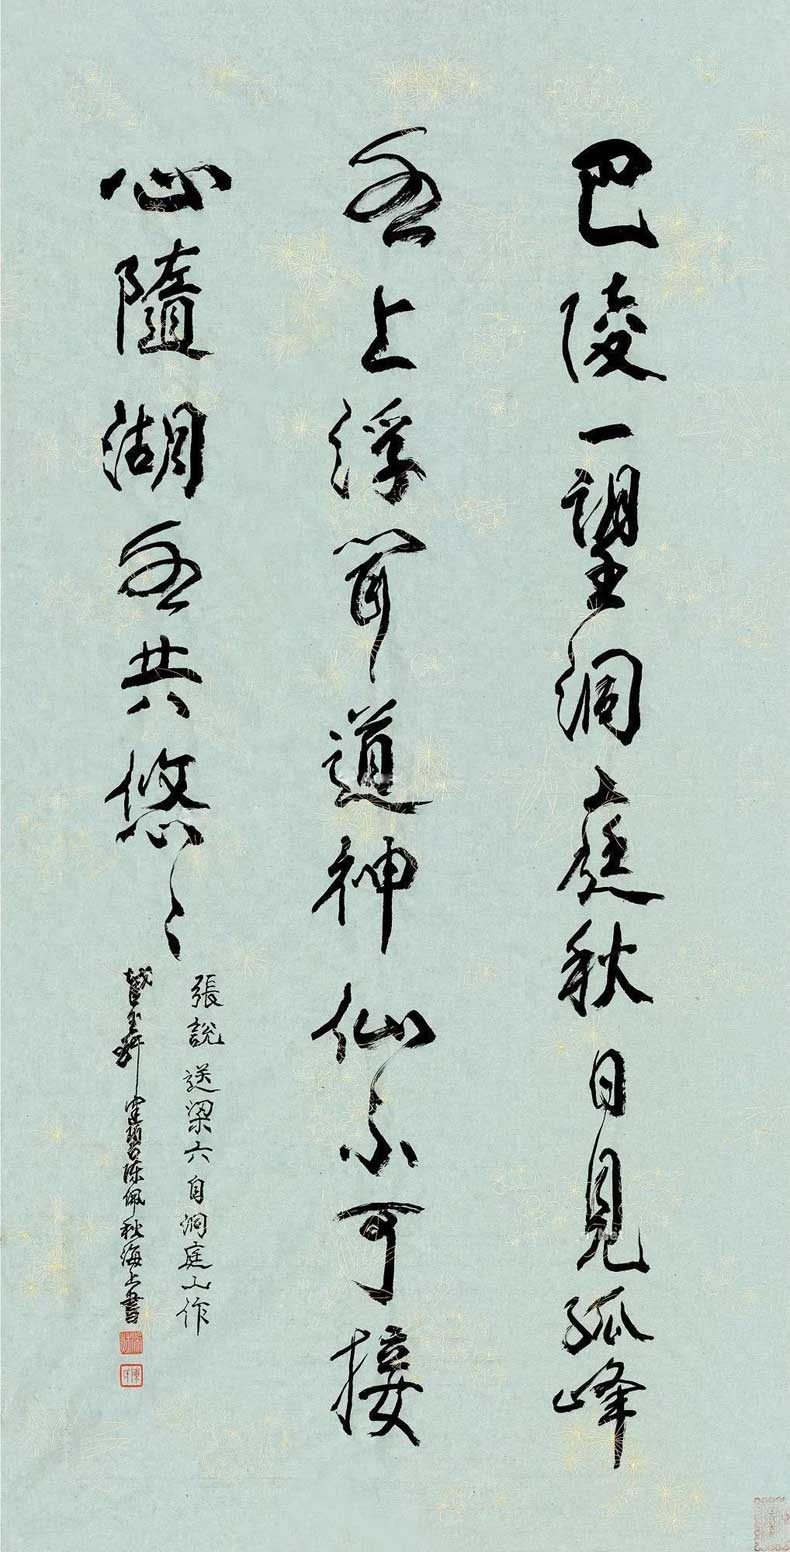 巴陵一望洞庭秋日見孤峰
水上浮聞道神仙不可接
心隨湖水共悠〻
張說送梁六自洞庭山作
健碧陳佩秋海上書